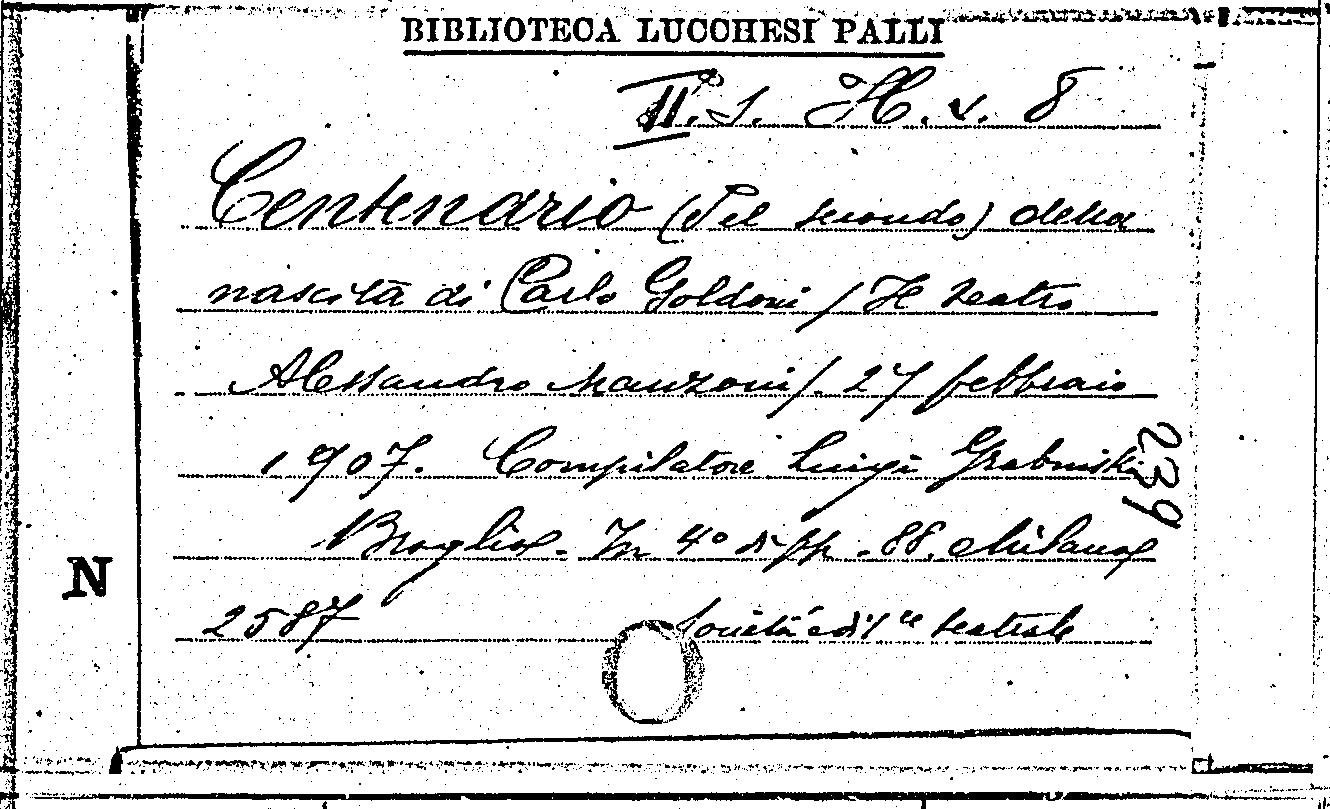 BIBLIOTECA LUCCHESI PALLI
II. S. H. v. 8
Centenario (Pel secondo) della
nascita di Carlo Goldoni / Il teatro
Alessandro Manzoni /. 27 febbraio
1907. Compilatore Luigi Grabinski
Broglio. In 4º di pp. 88. Milano
2587 Società edit.ce teatrale
239
N